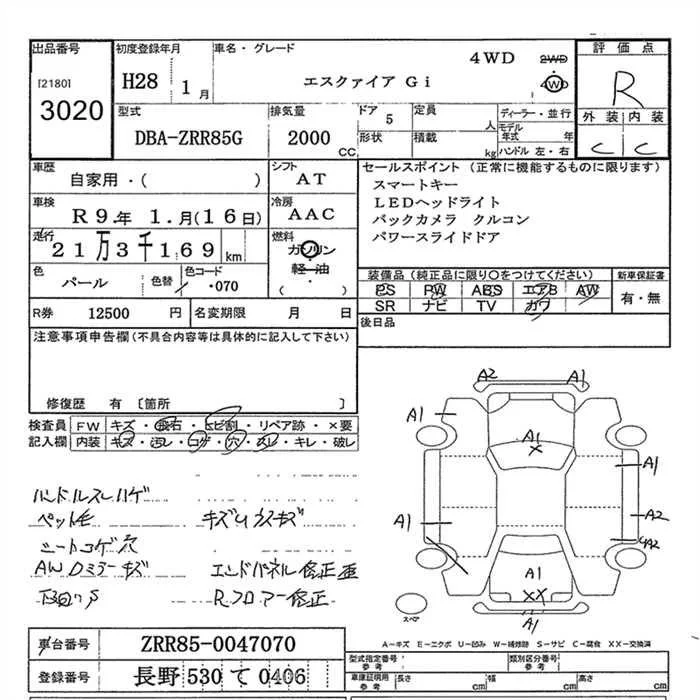 出品番号 初度登録年月 車名・グレード 4WD 2WD 評価点
[2180] H28 1月 エスクァイア Gi 4WD R
3020
型式 排気量 ドア 定員 ディーラー・並行 外装 内装
DBA-ZRR85G 2000 CC 5 人 モデル年式 年 C C
形状 積載 kg ハンドル 左・右
車歴 シフト セールスポイント (正常に機能するものに限ります)
自家用・( ) AT スマートキー
車検 冷房 LEDヘッドライト
R9.年 1.月(16日) AAC バックカメラ クルコン
走行 燃料 パワースライドドア
21万3千169 km ガソリン
軽・油
( )
色 色替 色コード 装備品 (純正品に限り○をつけてください) 新車保証書
パール ・070 PS PW ABS エアB AW 有・無
SR ナビ TV カワ
R券 12500 円 名変期限 月 日 後日品
注意事項申告欄(不具合内容等は具体的に記入して下さい)
修復歴 有 〔箇所 〕
検査員 FW キズ・飛石・ヒビ割・リペア跡・×要
記入欄 内装 キズ・汚レ・コゲ・穴・スレ・キレ・破レ
A2 A1
A1 A1
A1
A1 A2
A2
A1
A1
ハンドルスレハゲ
ペット毛 キズUクスキズ
シートコゲ穴
AWDミラーキズ エンドパネル修正歪
下回りS Rフロアー修正
スペア
A-キズ E-エクボ U-凹み W-補修跡 S-サビ C-腐食 XX-交換済
車台番号 ZRR85-0047070 型式指定番号 類別区分番号
登録番号 長野 530 て 0406 車庫証明用参考 長さ cm 幅 cm 高さ cm